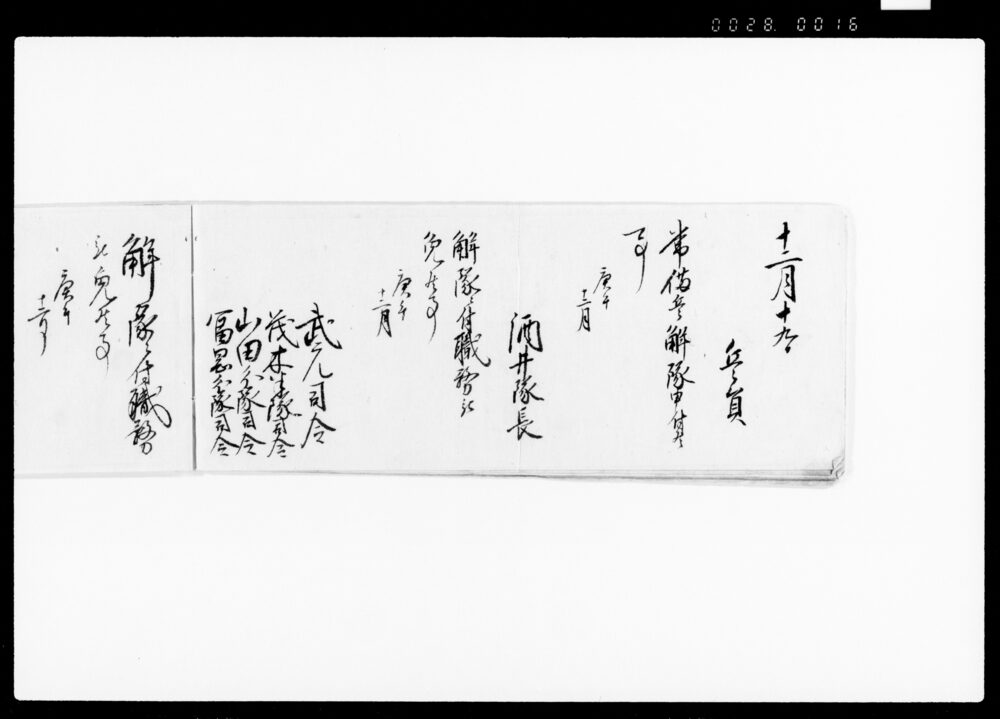 0028. 0016
十二月十九日
兵員
常備兵解隊申付候
事
庚午
十二月
酒井隊長
解隊ニ付職務被
免候事
庚午
十二月
武元司令
茂木半隊司令
山田分隊司令
冨岡分隊司令
解隊ニ付職務
被免候事
庚午
十二月